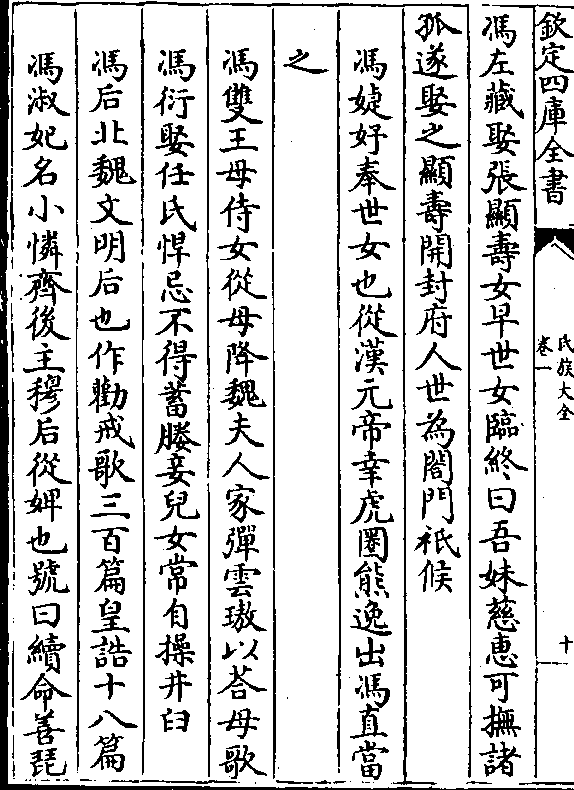 欽定四庫全書
氏族大全
卷一
十
馮左藏娶張顯壽女早世女臨終曰吾妹慈惠可撫諸
孤遂娶之顯壽開封府人世為閤門祗候
馮婕妤奉世女也從漢元帝幸虎圈熊逸出馮直當
之
馮雙王母侍女從母降魏夫人家彈雲璈以荅母歌
馮衍娶任氏悍忌不得蓄媵妾兒女常自操井臼
馮后北魏文明后也作勸戒歌三百篇皇誥十八篇
馮淑妃名小憐齊後主穆后從婢也號曰續命善琵